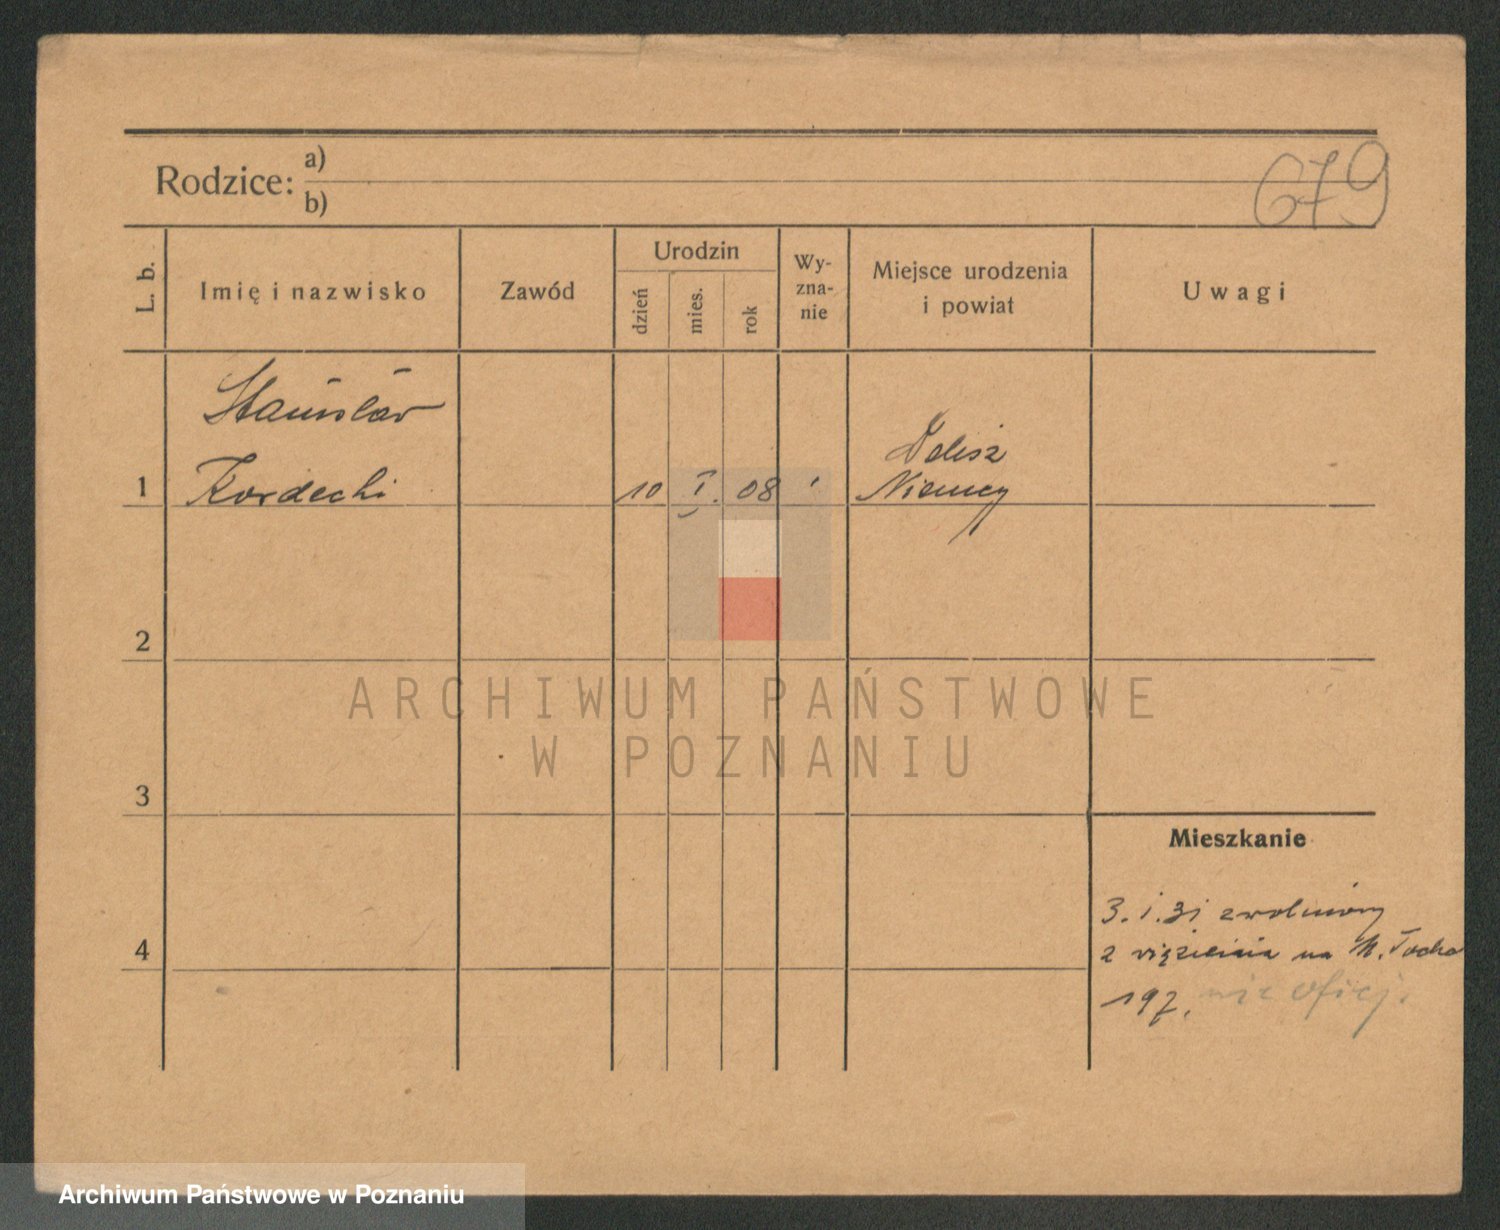 679
Rodzice: a)
b)
L. b.
Imię i nazwisko
Zawód
Urodzin
dzień
mies.
rok
Wy-
zna-
nie
Miejsce urodzenia
i powiat
Uwagi
Stanisław
1 Kordecki 10 I. 08
Niemcy
2
3
4
Mieszkanie
3. I. 31 zwolniony
z więzienia na M. Focha
197, nie oficj.
ARCHIWUM PAŃSTWOWE
W POZNANIU
Archiwum Państwowe w Poznaniu